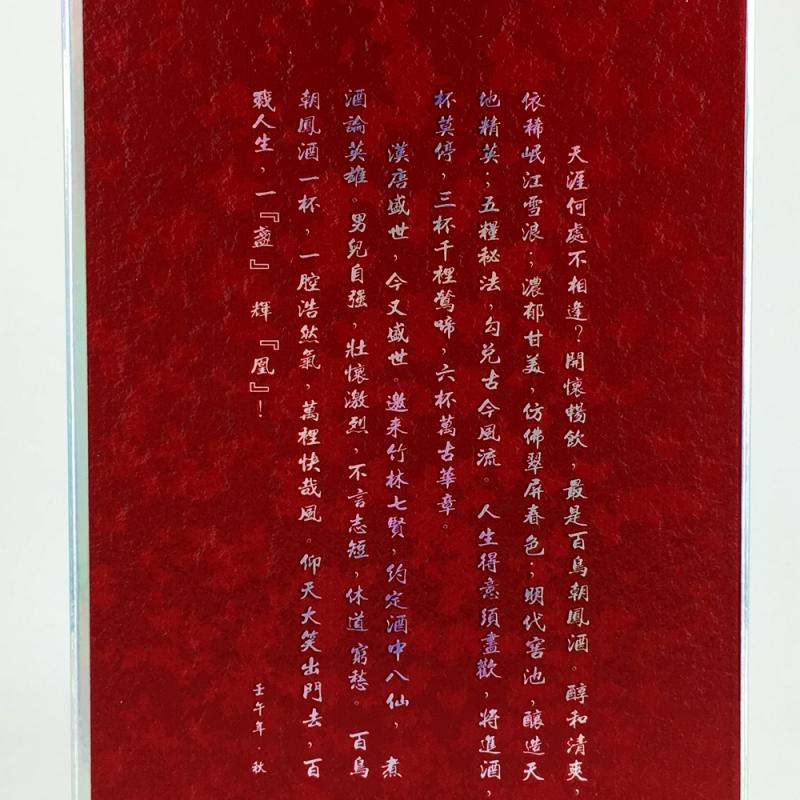 天涯何處不相逢？開懷暢飲，最是百鳥朝鳳酒。醇和清爽，
依稀岷江雪浪；濃郁甘美，仿佛翠屏春色；明代窖池，釀造天
地精英；五糧秘法，勾兌古今風流。人生得意須盡歡，將進酒，
杯莫停，三杯千裡鶯啼，六杯萬古華章。
漢唐盛世，今又盛世。邀来竹林七賢，約定酒中八仙，煮
酒論英雄。男兒自强，壯懷激烈，不言志短，休道窮愁。百鳥
朝鳳酒一杯，一腔浩然氣，萬裡快哉風。仰天大笑出門去，百
戰人生，一『盞』輝『凰』！
壬午年·秋